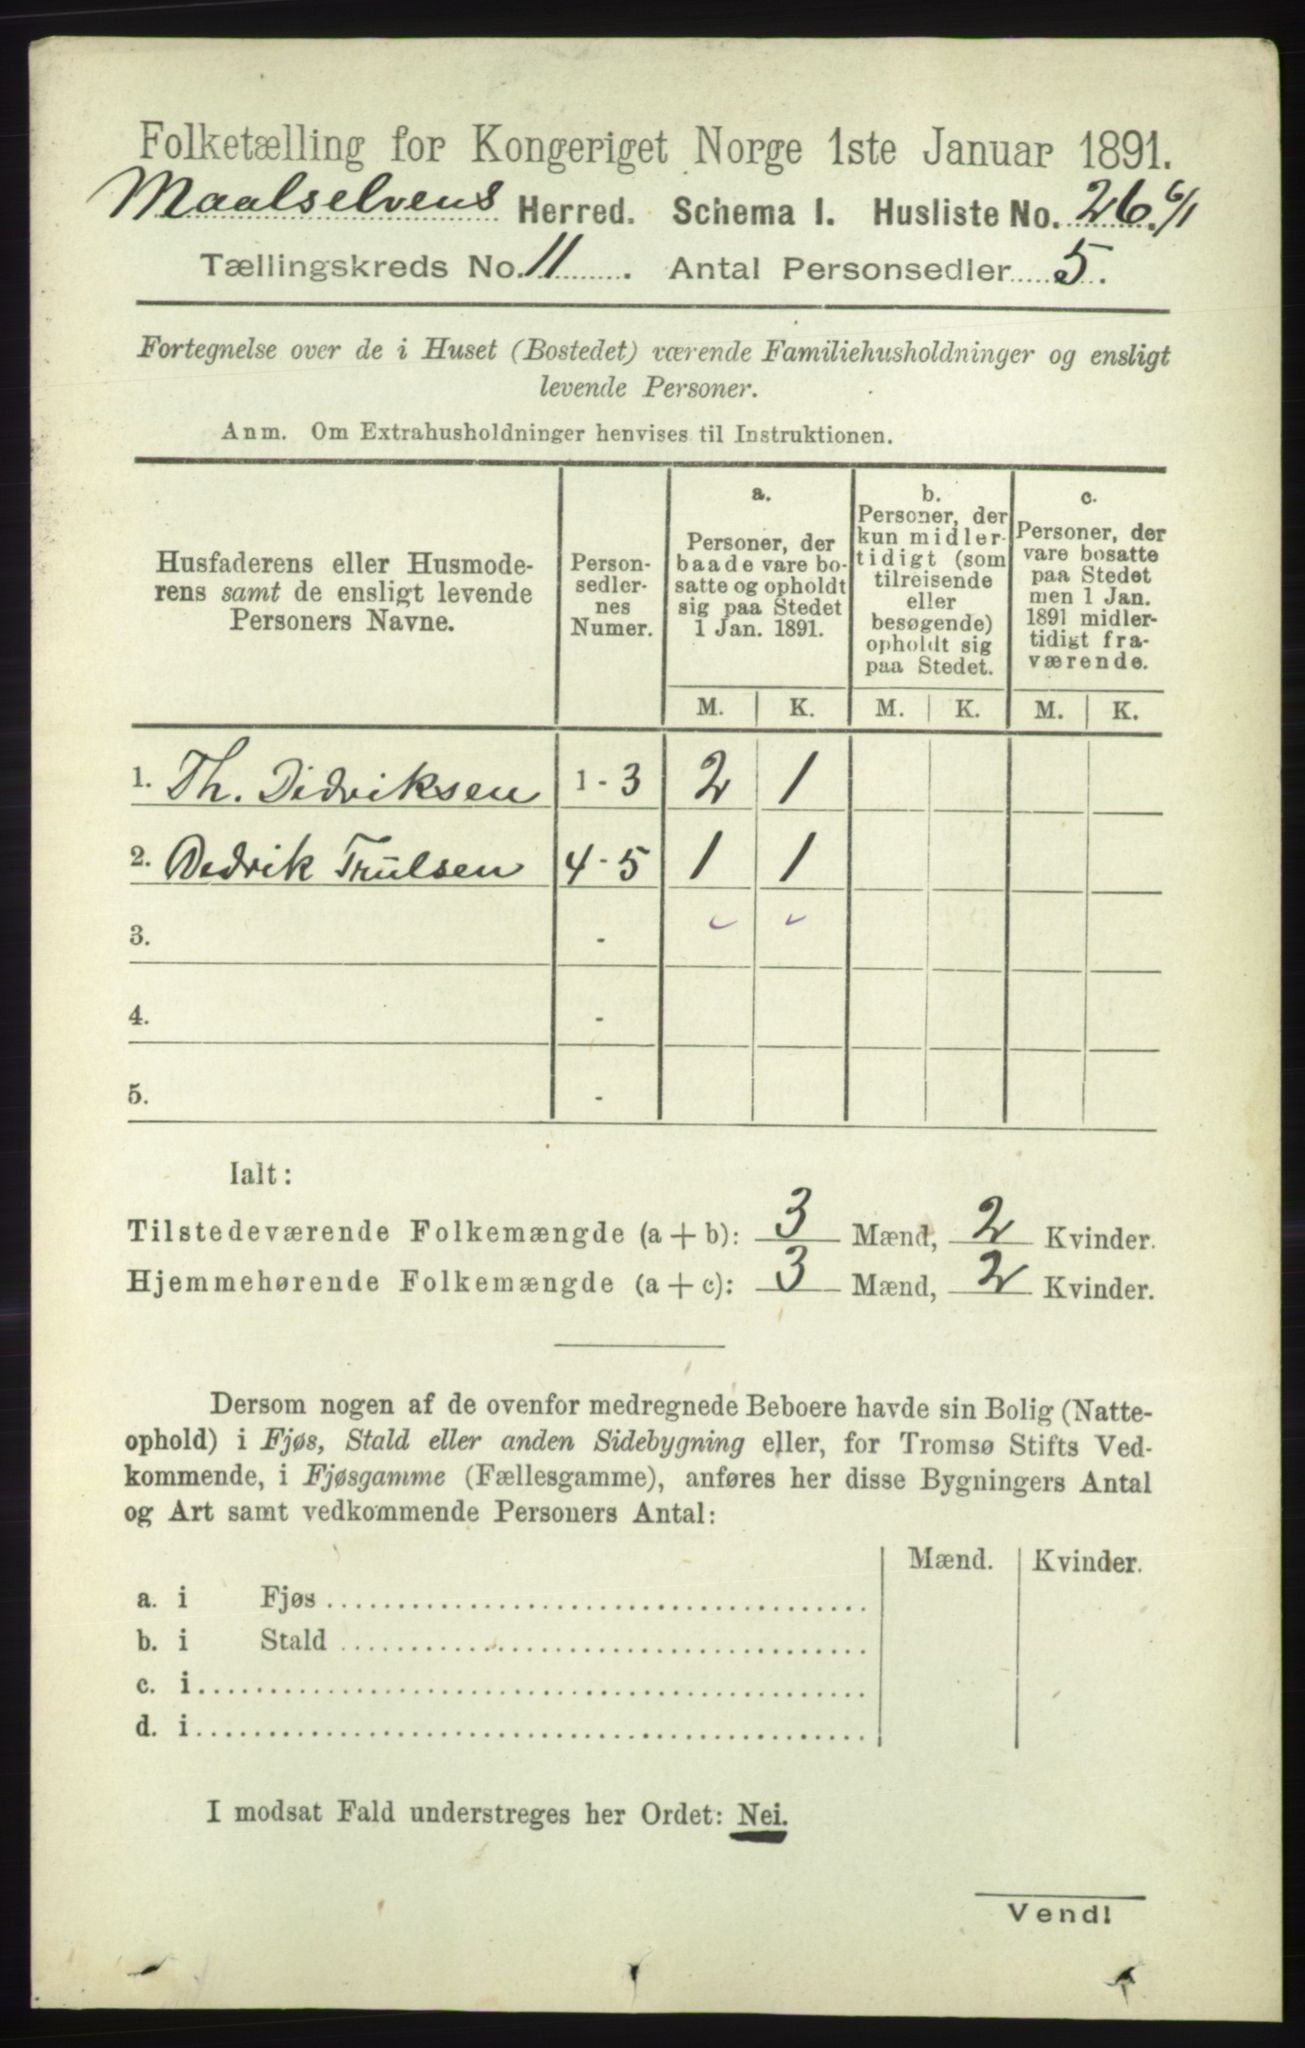 Folketælling for Kongeriget Norge 1ste Januar 1891.
Maalselvens Herred. Schema I. Husliste No. 26. 6/1
Tællingskreds No. 11. Antal Personsedler 5.
Fortegnelse over de i Huset (Bostedet) værende Familiehusholdninger og ensligt
levende Personer.
Anm. Om Extrahusholdninger henvises til Instruktionen.
Husfaderens eller Husmode-
rens samt de ensligt levende
Personers Navne.
Person-
sedler-
nes
Numer.
a.
Personer, der
baade vare bo-
satte og opholdt
sig paa Stedet
1 Jan. 1891.
b.
Personer, der
kun midler-
tidigt (som
tilreisende
eller
besøgende)
opholdt sig
paa Stedet.
c.
Personer, der
vare bosatte
paa Stedet
men 1 Jan.
1891 midler-
tidigt fra-
værende.
M. K. M. K. M. K.
1. Th. Didriksen 1-3 2 1
2. Dedrik Trulsen 4-5 1 1
3. -
4. -
5. -
Ialt:
Tilstedeværende Folkemængde (a + b): 3 Mænd, 2 Kvinder.
Hjemmehørende Folkemængde (a + c): 3 Mænd, 2 Kvinder.
Dersom nogen af de ovenfor medregnede Beboere havde sin Bolig (Natte-
ophold) i Fjøs, Stald eller anden Sidebygning eller, for Tromsø Stifts Ved-
kommende, i Fjøsgamme (Fællesgamme), anføres her disse Bygningers Antal
og Art samt vedkommende Personers Antal:
Mænd. Kvinder.
a. i Fjøs
b. i Stald
c. i
d. i
I modsat Fald understreges her Ordet: Nei.
Vend!